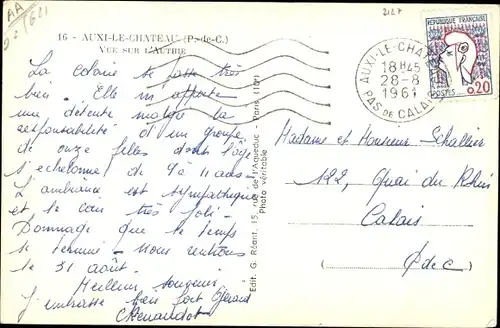 AA
621
2127
16 - AUXI-LE-CHATEAU (P.-de-C.)
VUE SUR L'AUTHIE
RÉPUBLIQUE FRANÇAISE
POSTES
0,20
AUXI-LE-CHATEAU
18H45
28-8
1961
PAS DE CALAIS
La colonie se passe très
bien. Elle m'apporte
une détente malgré la
responsabilité d'un groupe
de onze filles dont l'âge
s'échelonne de 9 à 11 ans.
L'ambiance est sympathique
et le coin très joli.
Dommage que le temps
se termine. Nous rentrons
le 31 août.
Meilleur souvenir
J'embrasse bien fort Gérard
Edit. G. Réant, 15, rue de l'Aqueduc - Paris (10e)
Photo véritable
Madame et Monsieur Schallier
122, Quai du Rhin
Calais
(P de C)